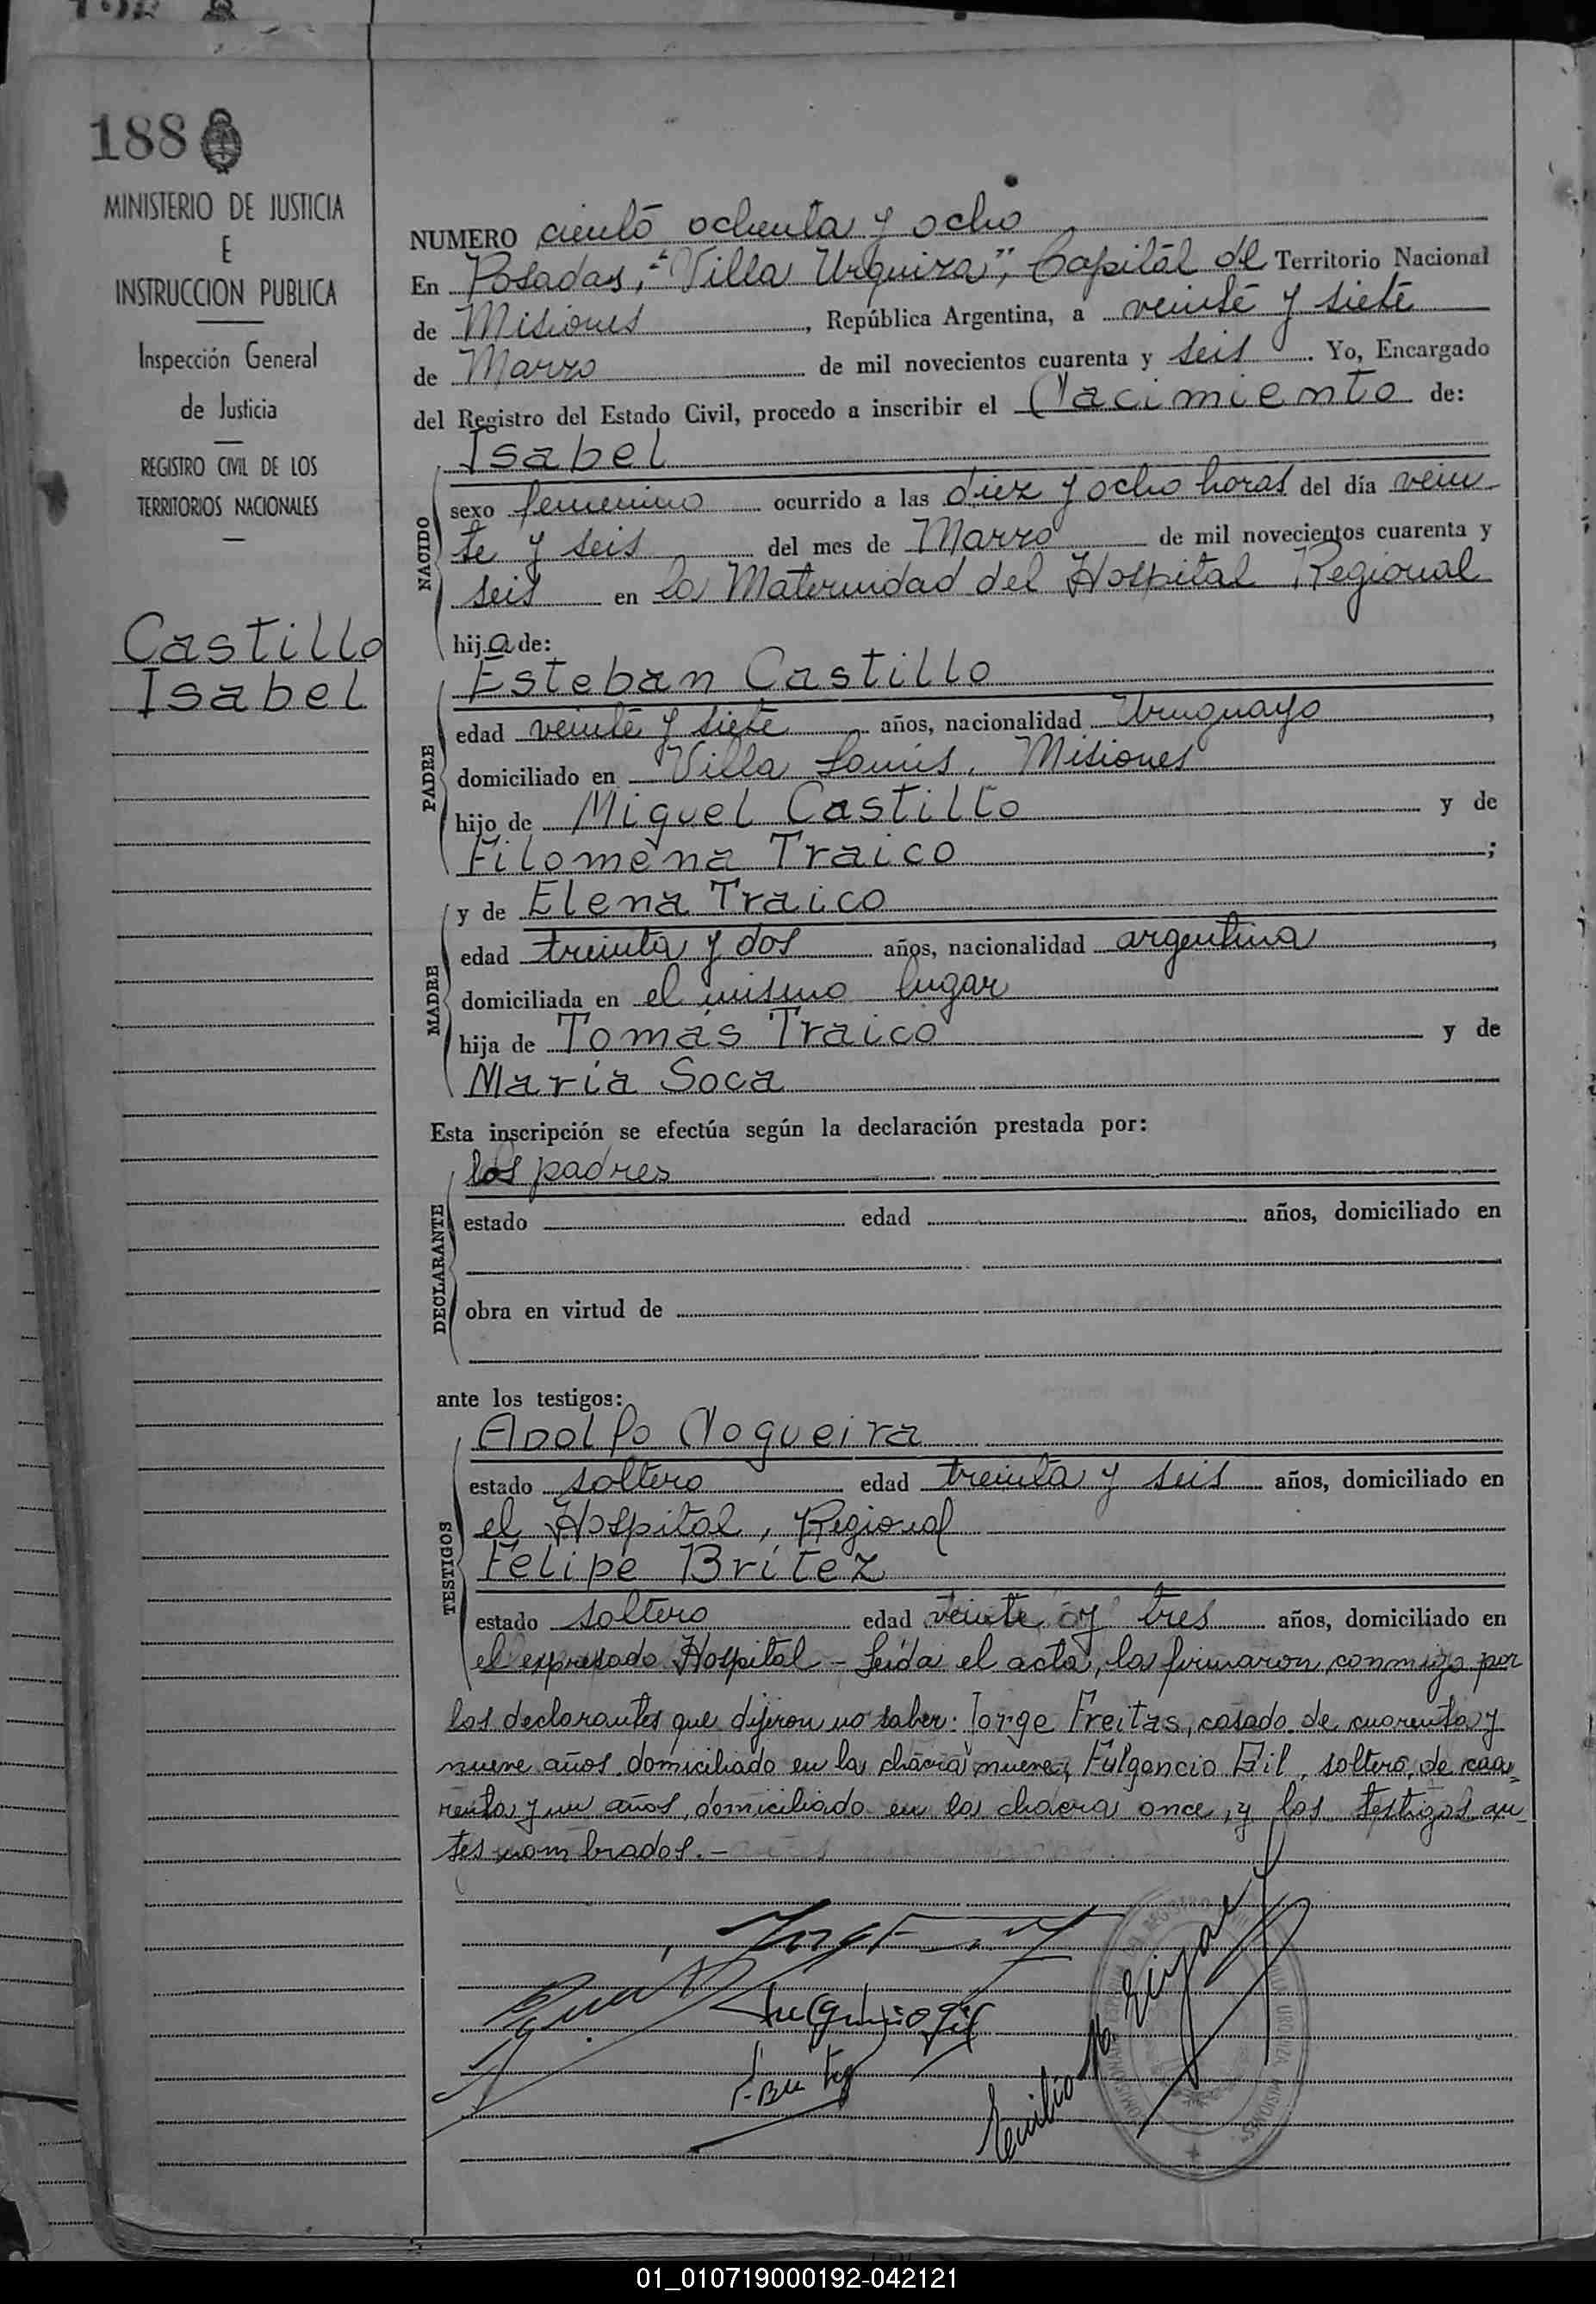 188
MINISTERIO DE JUSTICIA
E
INSTRUCCION PUBLICA
Inspección General
de Justicia
REGISTRO CIVIL DE LOS
TERRITORIOS NACIONALES
Castillo
Isabel
NUMERO ciento ochenta y ocho
En Posadas, "Villa Urquiza", Capital del Territorio Nacional
de Misiones, República Argentina, a veinte y siete
de Marzo de mil novecientos cuarenta y seis. Yo, Encargado
del Registro del Estado Civil, procedo a inscribir el Nacimiento de:
Isabel
NACIDO
sexo femenino ocurrido a las diez y ocho horas del día vein
te y seis del mes de Marzo de mil novecientos cuarenta y
seis en la Maternidad del Hospital Regional
hija de:
PADRE
Esteban Castillo
edad veinte y siete años, nacionalidad Uruguayo,
domiciliado en Villa Lanús, Misiones
hijo de Miguel Castillo y de
Filomena Traico;
MADRE
y de Elena Traico
edad treinta y dos años, nacionalidad argentina,
domiciliada en el mismo lugar
hija de Tomás Traico y de
María Soca
Esta inscripción se efectúa según la declaración prestada por:
DECLARANTE
los padres
estado edad años, domiciliado en
obra en virtud de
ante los testigos:
TESTIGOS
Adolfo Nogueira
estado soltero edad treinta y seis años, domiciliado en
el Hospital, Regional
Felipe Britez
estado soltero edad veinte y tres años, domiciliado en
el expresado Hospital - Leída el acta, la firmaron conmigo por
los declarantes que dijeron no saber: Jorge Freitas, casado de cuarenta y
nueve años, domiciliado en la chacra nueve, Fulgencio Gil, soltero, de cua
renta y un años, domiciliado en la chacra once, y los testigos an
tes nombrados.-
Fulgencio Gil
F. Britez
Emilio
VILLA URQUIZA MISIONES
01_010719000192-042121